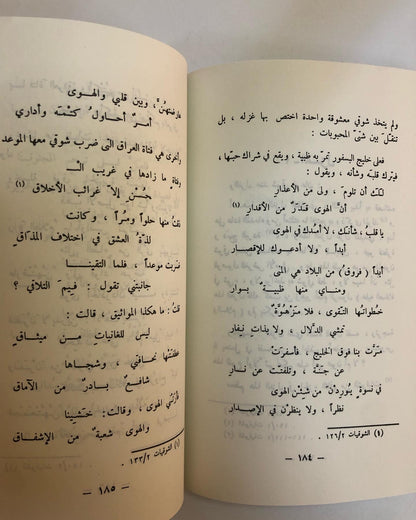 ولم يتخذ شوقي معشوقة واحدة اختص بها غزله ، بل
تنقّل بين شتى المحبوبات :
فعلى خليج البسفور تمرّ به ظبية ، ويقع في شراك حبّها ،
فيترك قلبه وشأنه ، ويقول :
لكَ أن تلومَ ، ولي من الأعذارِ
أنَّ الهوى قَدَرٌ من الأقدارِ (١)
يا قلبُ ، شأنك ، لا أمدك في الهوى
أبداً ، ولا أدعوك للإقصار
أبداً ( فروق ) من البلاد هي المنى
ومناي منها ظبيةٌ بسوار
خطواتها التقوى ، فلا مزهوّةٌ
تمشي الدلال ، ولا بذات نِفار
مرّت بنا فوق الخليج ، فأسفرت
عن جنّة ، وتلفتت عن نار
في نسوةٍ يُورِدْن من شِئْن الهوى
نظراً ، ولا ينظرن في الإصدار
(٤) الشوقيات ١٢٦/٢ .
– ١٨٤ –
عارضتهنّ ، وبين قلبي والهوى
أمرٌ أحاولُ كتمه وأداري
وأخرى هي فتاة العراق التي ضرب شوقي معها الموعد
رفاة ما زادها في غريب الـ
حُسْنِ إلاّ غرائب الأخلاق (١)
ذقتُ منها حلواً ومُرّاً ، وكانت
لذةُ العشق في اختلاف المذاق
ضربت موعداً ، فلما التقينا
جانبتني تقول : فيمَ التلاقي ؟
قلتُ : ما هكذا المواثيق ، قالت :
ليس للغانيات من ميثاق
عطفتها نحافتي ، وشجاها
شافعٌ بادرٌ من الآماق
فأرتني الهوى ، وقالت : خشينا
والهوى شعبةٌ من الإشفاق
(١) الشوقيات ١٣٣/٢ .
– ١٨٥ –